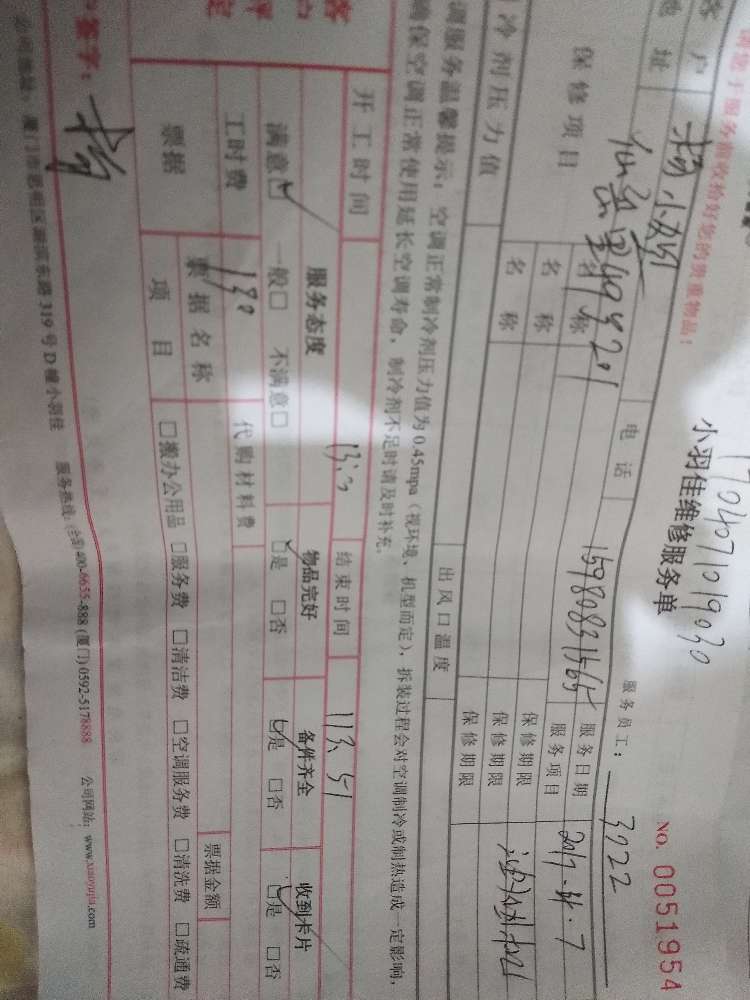 170407019030
小羽佳维修服务单
NO. 0051954
请您于服务前收拾好您的贵重物品!
服务员工: 3022
客户 杨小姐 电话 15980831565 服务日期
地址 服务项目
保修项目 名称 保修期限
名称 保修期限
名称 保修期限
冷剂压力值 出风口温度
调服务温馨提示: 空调正常制冷剂压力值为0.45mpa(视环境、机型而定), 拆装过程会对空调制冷或制热造成一定影响,
确保空调正常使用延长空调寿命, 制冷剂不足时请及时补充。
开工时间 结束时间
客 服务态度 物品完好 备件齐全 收到卡片
户
评 满意☑ 一般□ 不满意□ ☑是 □否 ☑是 □否 ☑是 □否
定
工时费 190 代购材料费
票据 票据名称 票据金额
项目 □搬办公用品 □服务费 □清洁费 □空调服务费 □清洗费 □疏通费
签字: 杨
公司地址: 厦门市思明区湖滨东路319号D幢小羽佳 服务热线: (全国)400-6655-888 (厦门)0592-5178888 公司网站: www.xiaoyujia.com